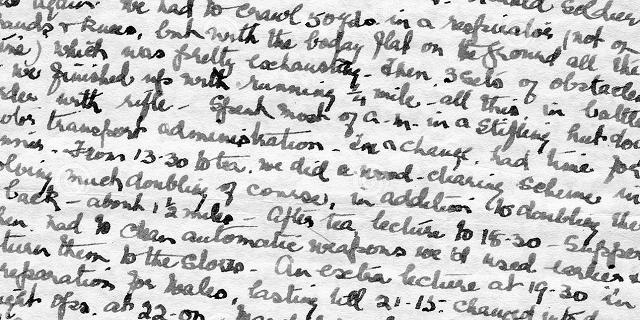 again. We had to crawl 50 yds. in a respirator (not on
hands & knees, but with the boday flat on the ground all the
time) which was pretty exhausting - Then 3 sets of obstacles
we finished up with running ¼ mile - all this in battle
order with rifle - Spent most of a.m. in a stifling hut doing
motor transport administration - In a change, had time for
- From 13-30 to tea, we did a wood-clearing scheme in
volving much doubling of course, in addition to doubling there
& back - about 1½ miles - After tea lecture to 18-30 - Supper
then had to clean automatic weapons we'd used earlier &
return them to the stores - An extra lecture at 19-30 in
preparation for Wales, lasting till 21-15. changed into d
night ops. at 22-00